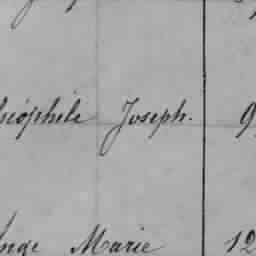 héophile Joseph. 9
nge Marie 12